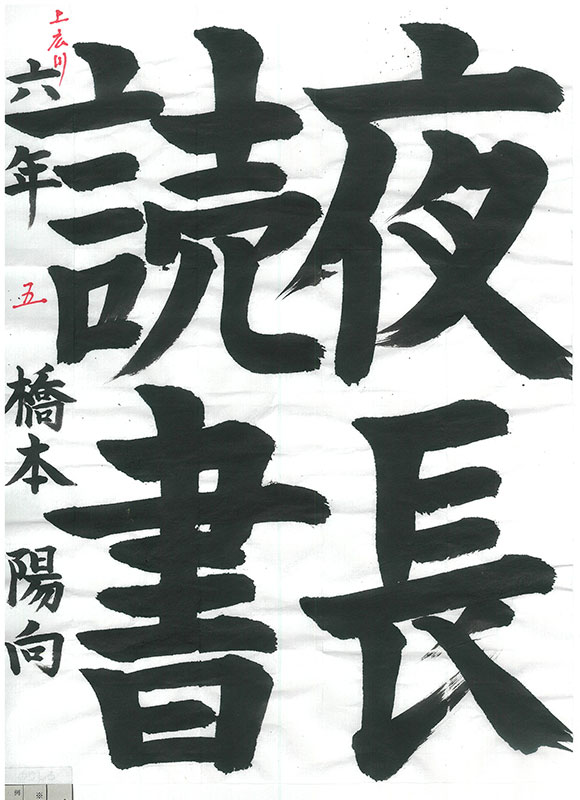 夜長
読書
上広川
六年
五
橋本 陽向